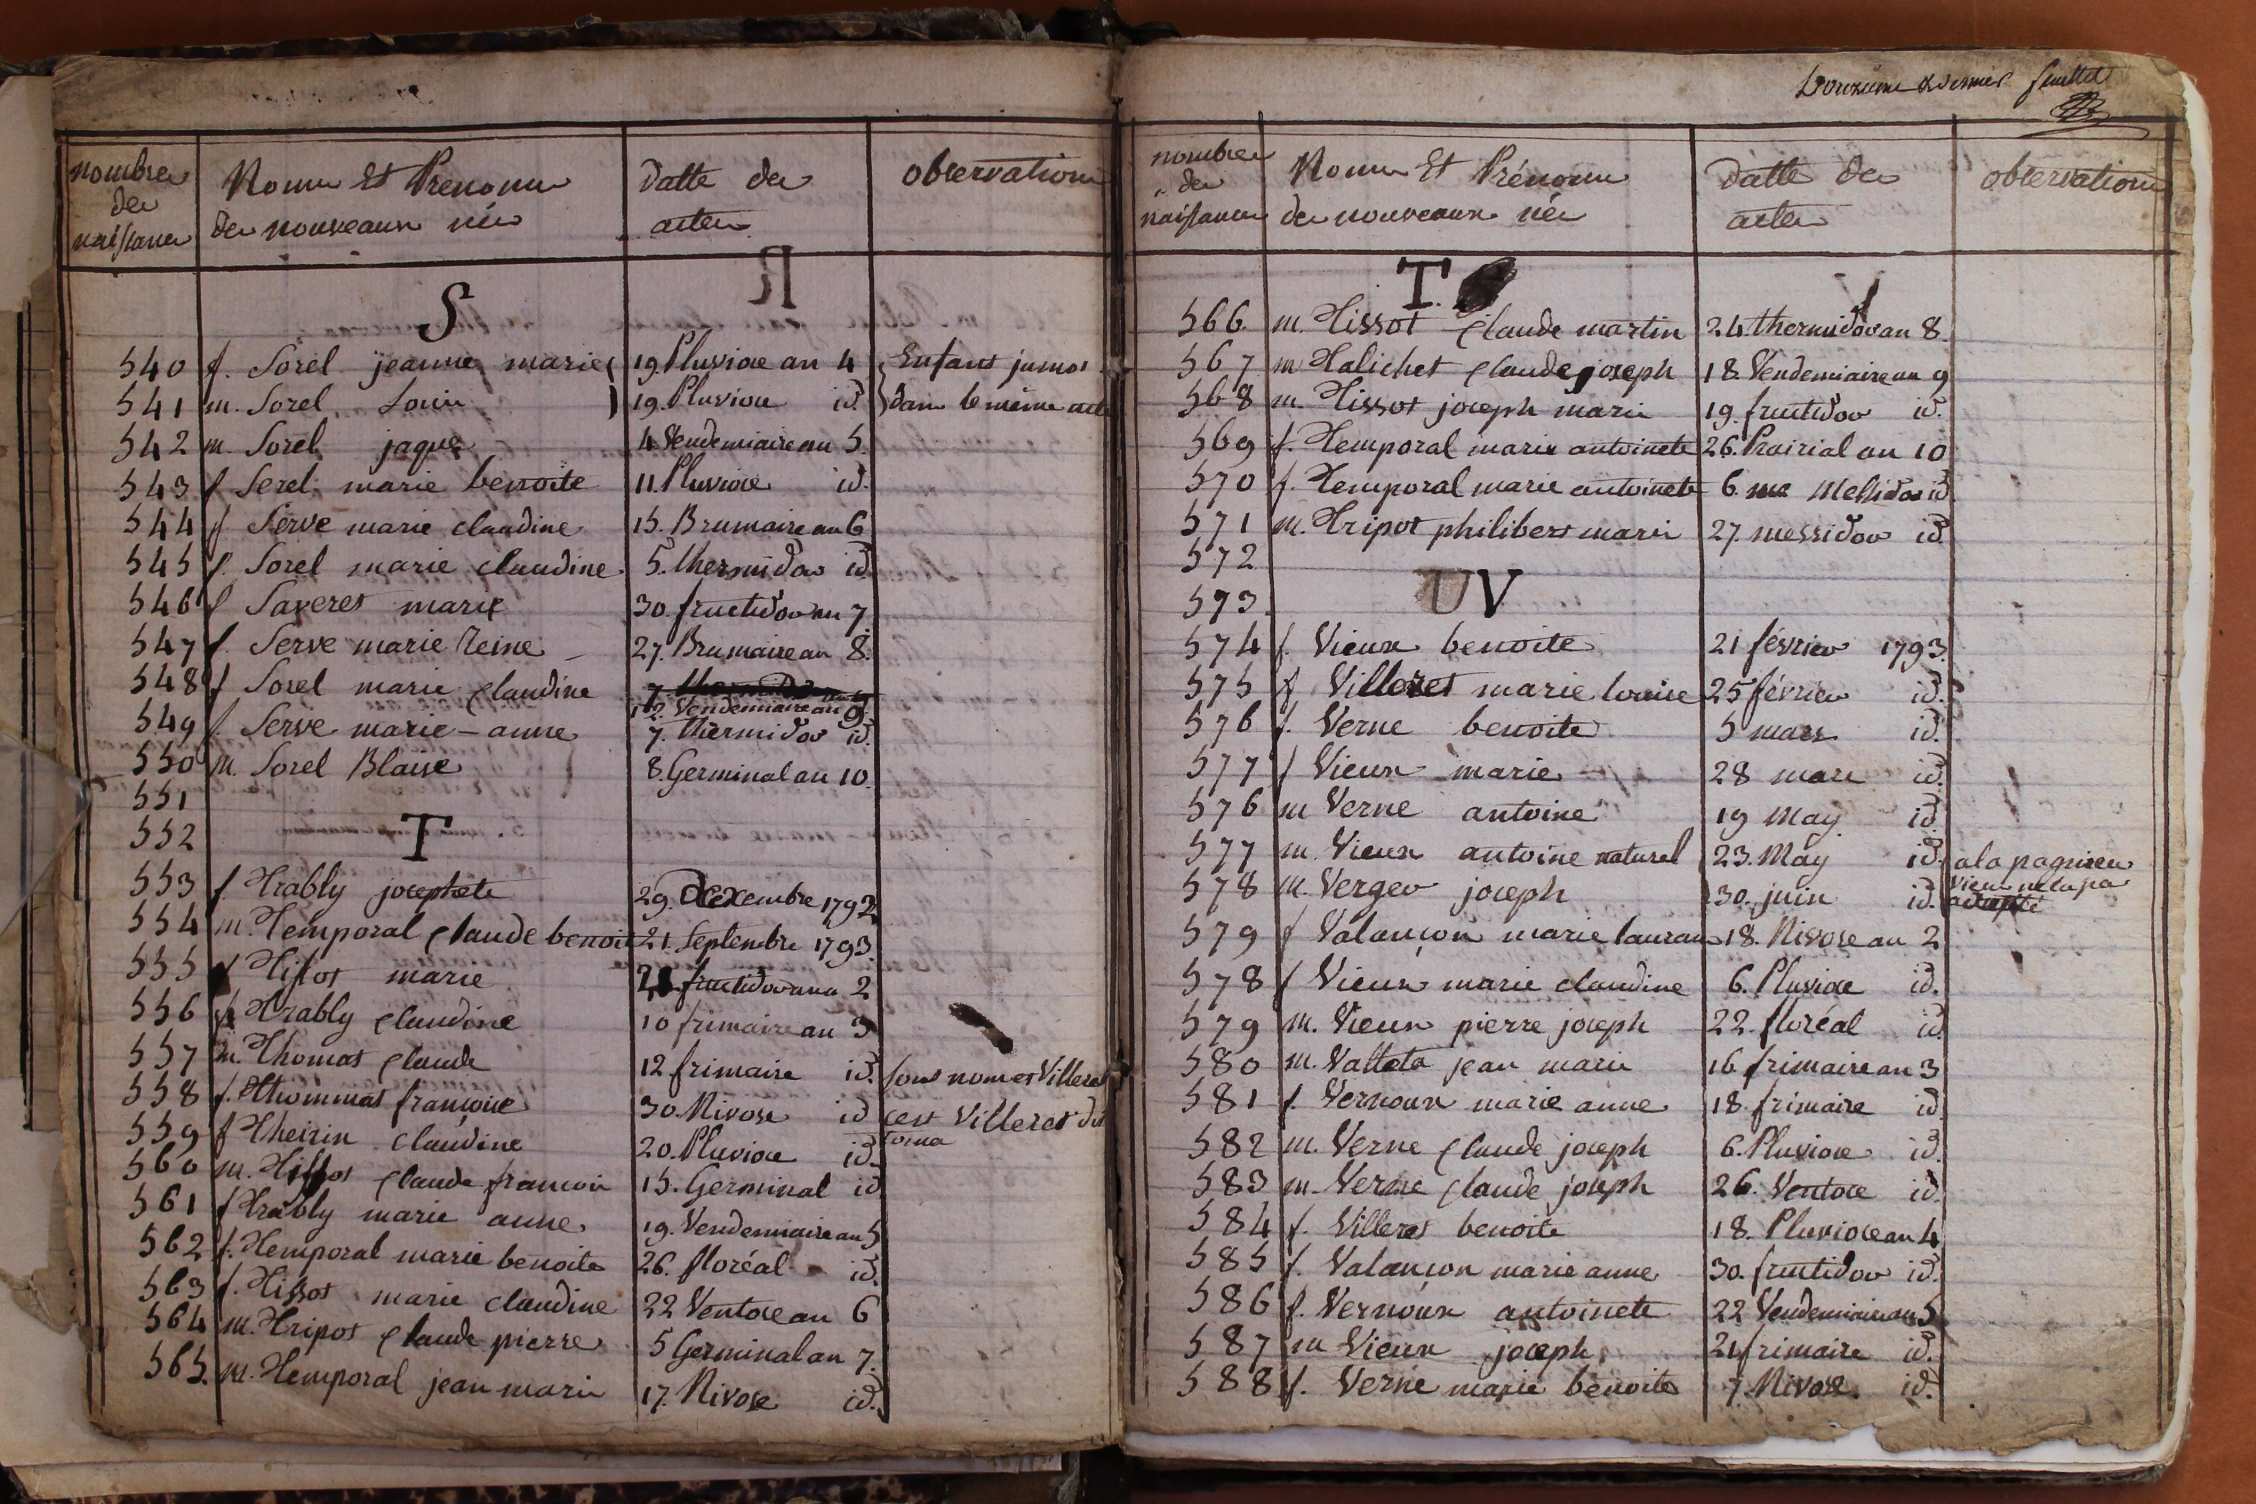 nombre Noms Et Prenoms datte des observations
des des nouveaux nés actes
naissances
S
540 f. Sorel jeanne marie 19. Pluviose an 4 Enfans jumos
541 m. Sorel Louis 19. Pluviose id. dans le même acte
542 m. Sorel jaques 4 Vendemiaire an 5.
543 f Serel marie benoite 11. Pluviose id.
544 f Serve marie claudine 15. Brumaire an 6
545 f. Sorel marie claudine 5. thermidor id.
546 f Saveret marie 30. fructidor an 7
547 f. Serve marie Reine 27. Brumaire an 8.
548 f Sorel marie claudine 12 Vendemiaire an 9
549 f. Serve marie - anne 7. thermidor id.
550 m. Sorel Blaise 8. Germinal an 10.
551
552 T
553 f Trably josephete 29. Dexembre 1792
554 m. Temporal claude benoit 21. Septembre 1793.
555 f Tissot marie fructidor 2
556 f Trably claudine 10 frimaire an 3
557 m. Thomas claude 12 frimaire id. sous nom et Villeret
558 f. Thommas françoise 30. Nivose id c'est Villeret dit
559 f Theirin claudine 20. Pluviose id. toma
560 m. Tissot claude françois 15. Germinal id
561 f Trably marie anne 19. Vendemiaire an 5
562 f. Temporal marie benoite 26. floréal id.
563 f. Tissot marie claudine 22 Ventose an 6
564 m. Tripot claude pierre 5 Germinal an 7.
565. m. Temporal jean marie 17. Nivose id.
Douzieme & dernier feuillet
nombre Noms Et Prénoms datte des observations
des des nouveaux nés actes
naissances
T
566. m. Tissot claude martin 24. thermidor an 8.
567 m Talichet claude joseph 18. Vendemiaire an 9
568 m. Tissot joseph marie 19. fructidor id.
569 f. Temporal marie antoinete 26. Prairial an 10
570 f. Temporal marie antoinete 6. Messidor id
571 m. Tripot philibert marie 27. messidor id.
572
573 UV
574 f. Vieux benoite 21 février 1793.
575 f Villeret marie louise 25 février id.
576 f. Verne benoite 5 mars id.
577 f Vieux marie 28 mars id.
576 m Verne antoine 19 May id.
577 m. Vieux antoine naturel 23. May id.
578 m. Verger joseph 30. juin id.
579 f Valançon marie 18. Nivose an 2
578 f Vieux marie claudine 6. Pluviose id.
579 m. Vieux pierre joseph 22. floréal id
580 m. Valleta jean marie 16 frimaire an 3
581 f. Vernoux marie anne 18. frimaire id
582 m. Verne claude joseph 6. Pluviose id.
583 m. Verne claude joseph 26. Ventose id.
584 f. Villeret benoite 18. Pluviose an 4
585 f. Valançon marie anne 30. fructidor id.
586 f. Vernoux antoinete 22 Vendemiaire an 5
587 m Vieux joseph 21 frimaire id.
588 f. Verne marie benoite 7. Nivose id.